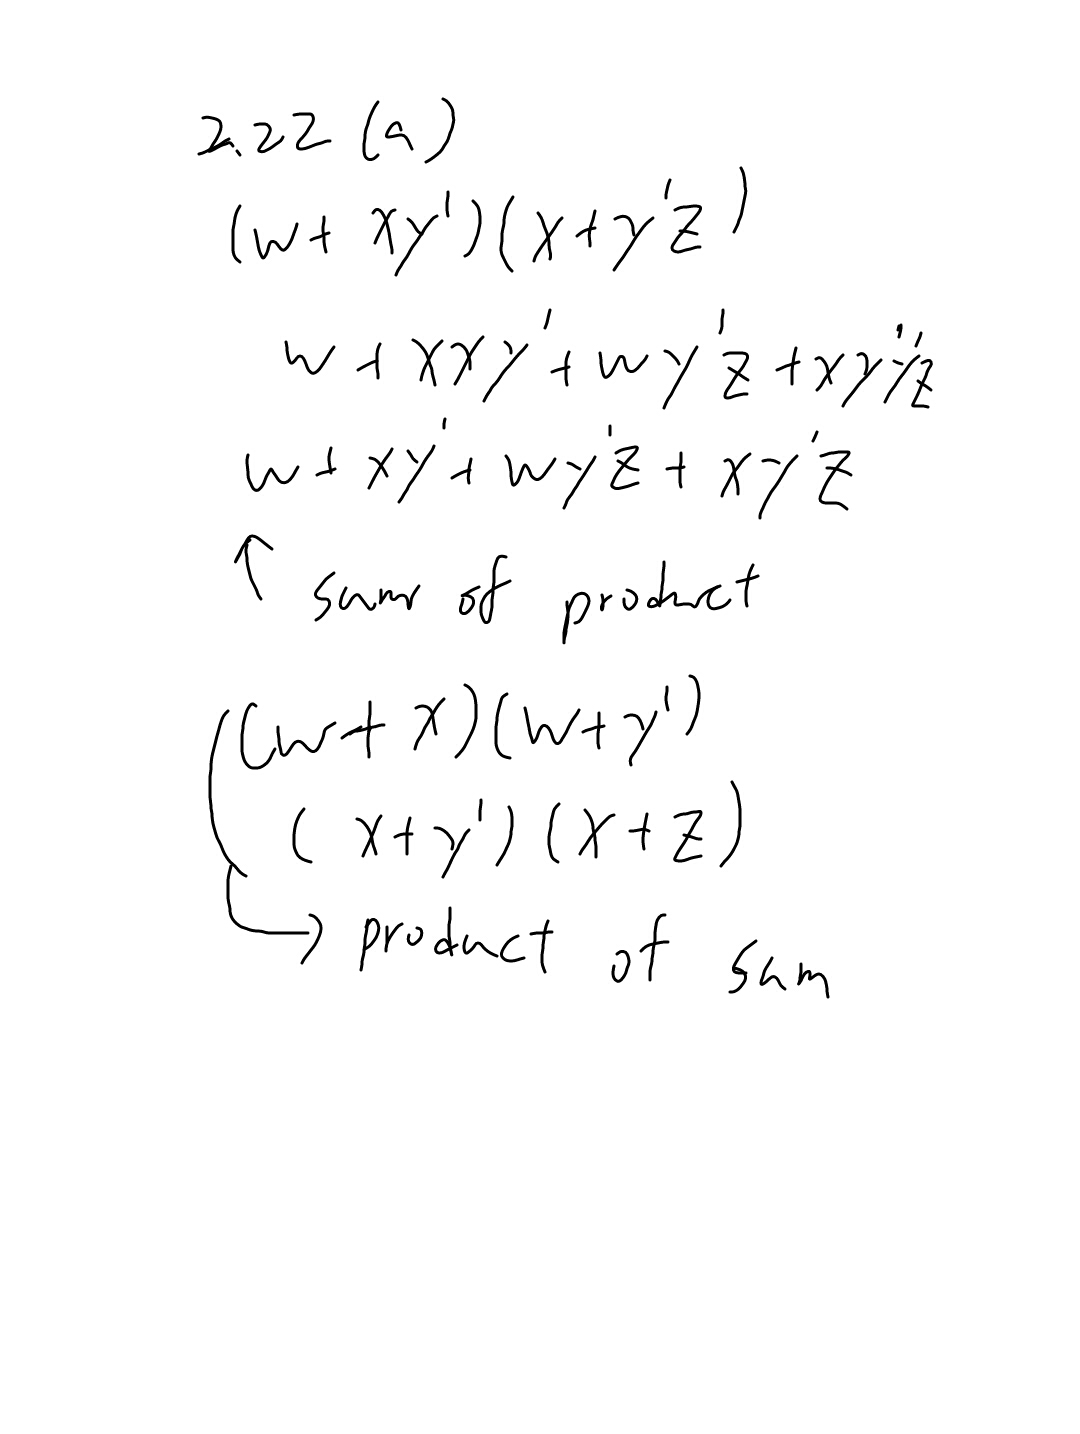 2.22 (a)
(w + xy')(x + y'z)
w + xxy' + wy'z + xy'y'z
w + xy' + wy'z + xy'z
↑ sum of product
(w + x)(w + y')
(x + y')(x + z)
→ product of sum